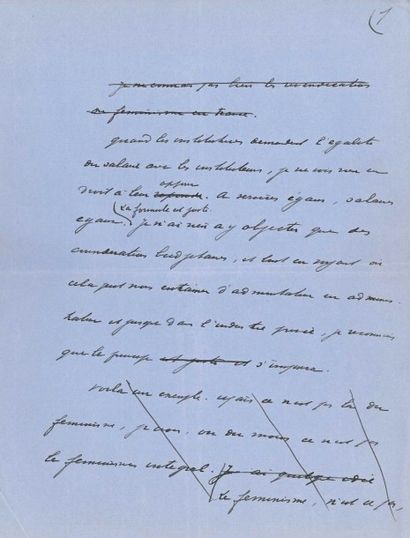 1
je ne connais pas bien les revendications
du feminisme en France.
quand les institutrices demandent l'egalité
du salaire avec les instituteurs, je ne vois rien en
droit à leur opposer. A services égaux, salaires
égaux. La formule est juste. je n'ai rien à y objecter que des
considérations budgétaires, et tout en voyant où
cela peut nous entrainer d'administration en adminis-
tration et jusque dans l'industrie privée, je reconnais
que le principe est juste et s'impose.
Voilà un exemple. mais ce n'est pas là du
feminisme, je crois. ou du moins ce n'est pas
le feminisme intégral. Je ai quelque idée
Le feminisme, n'est ce pas,